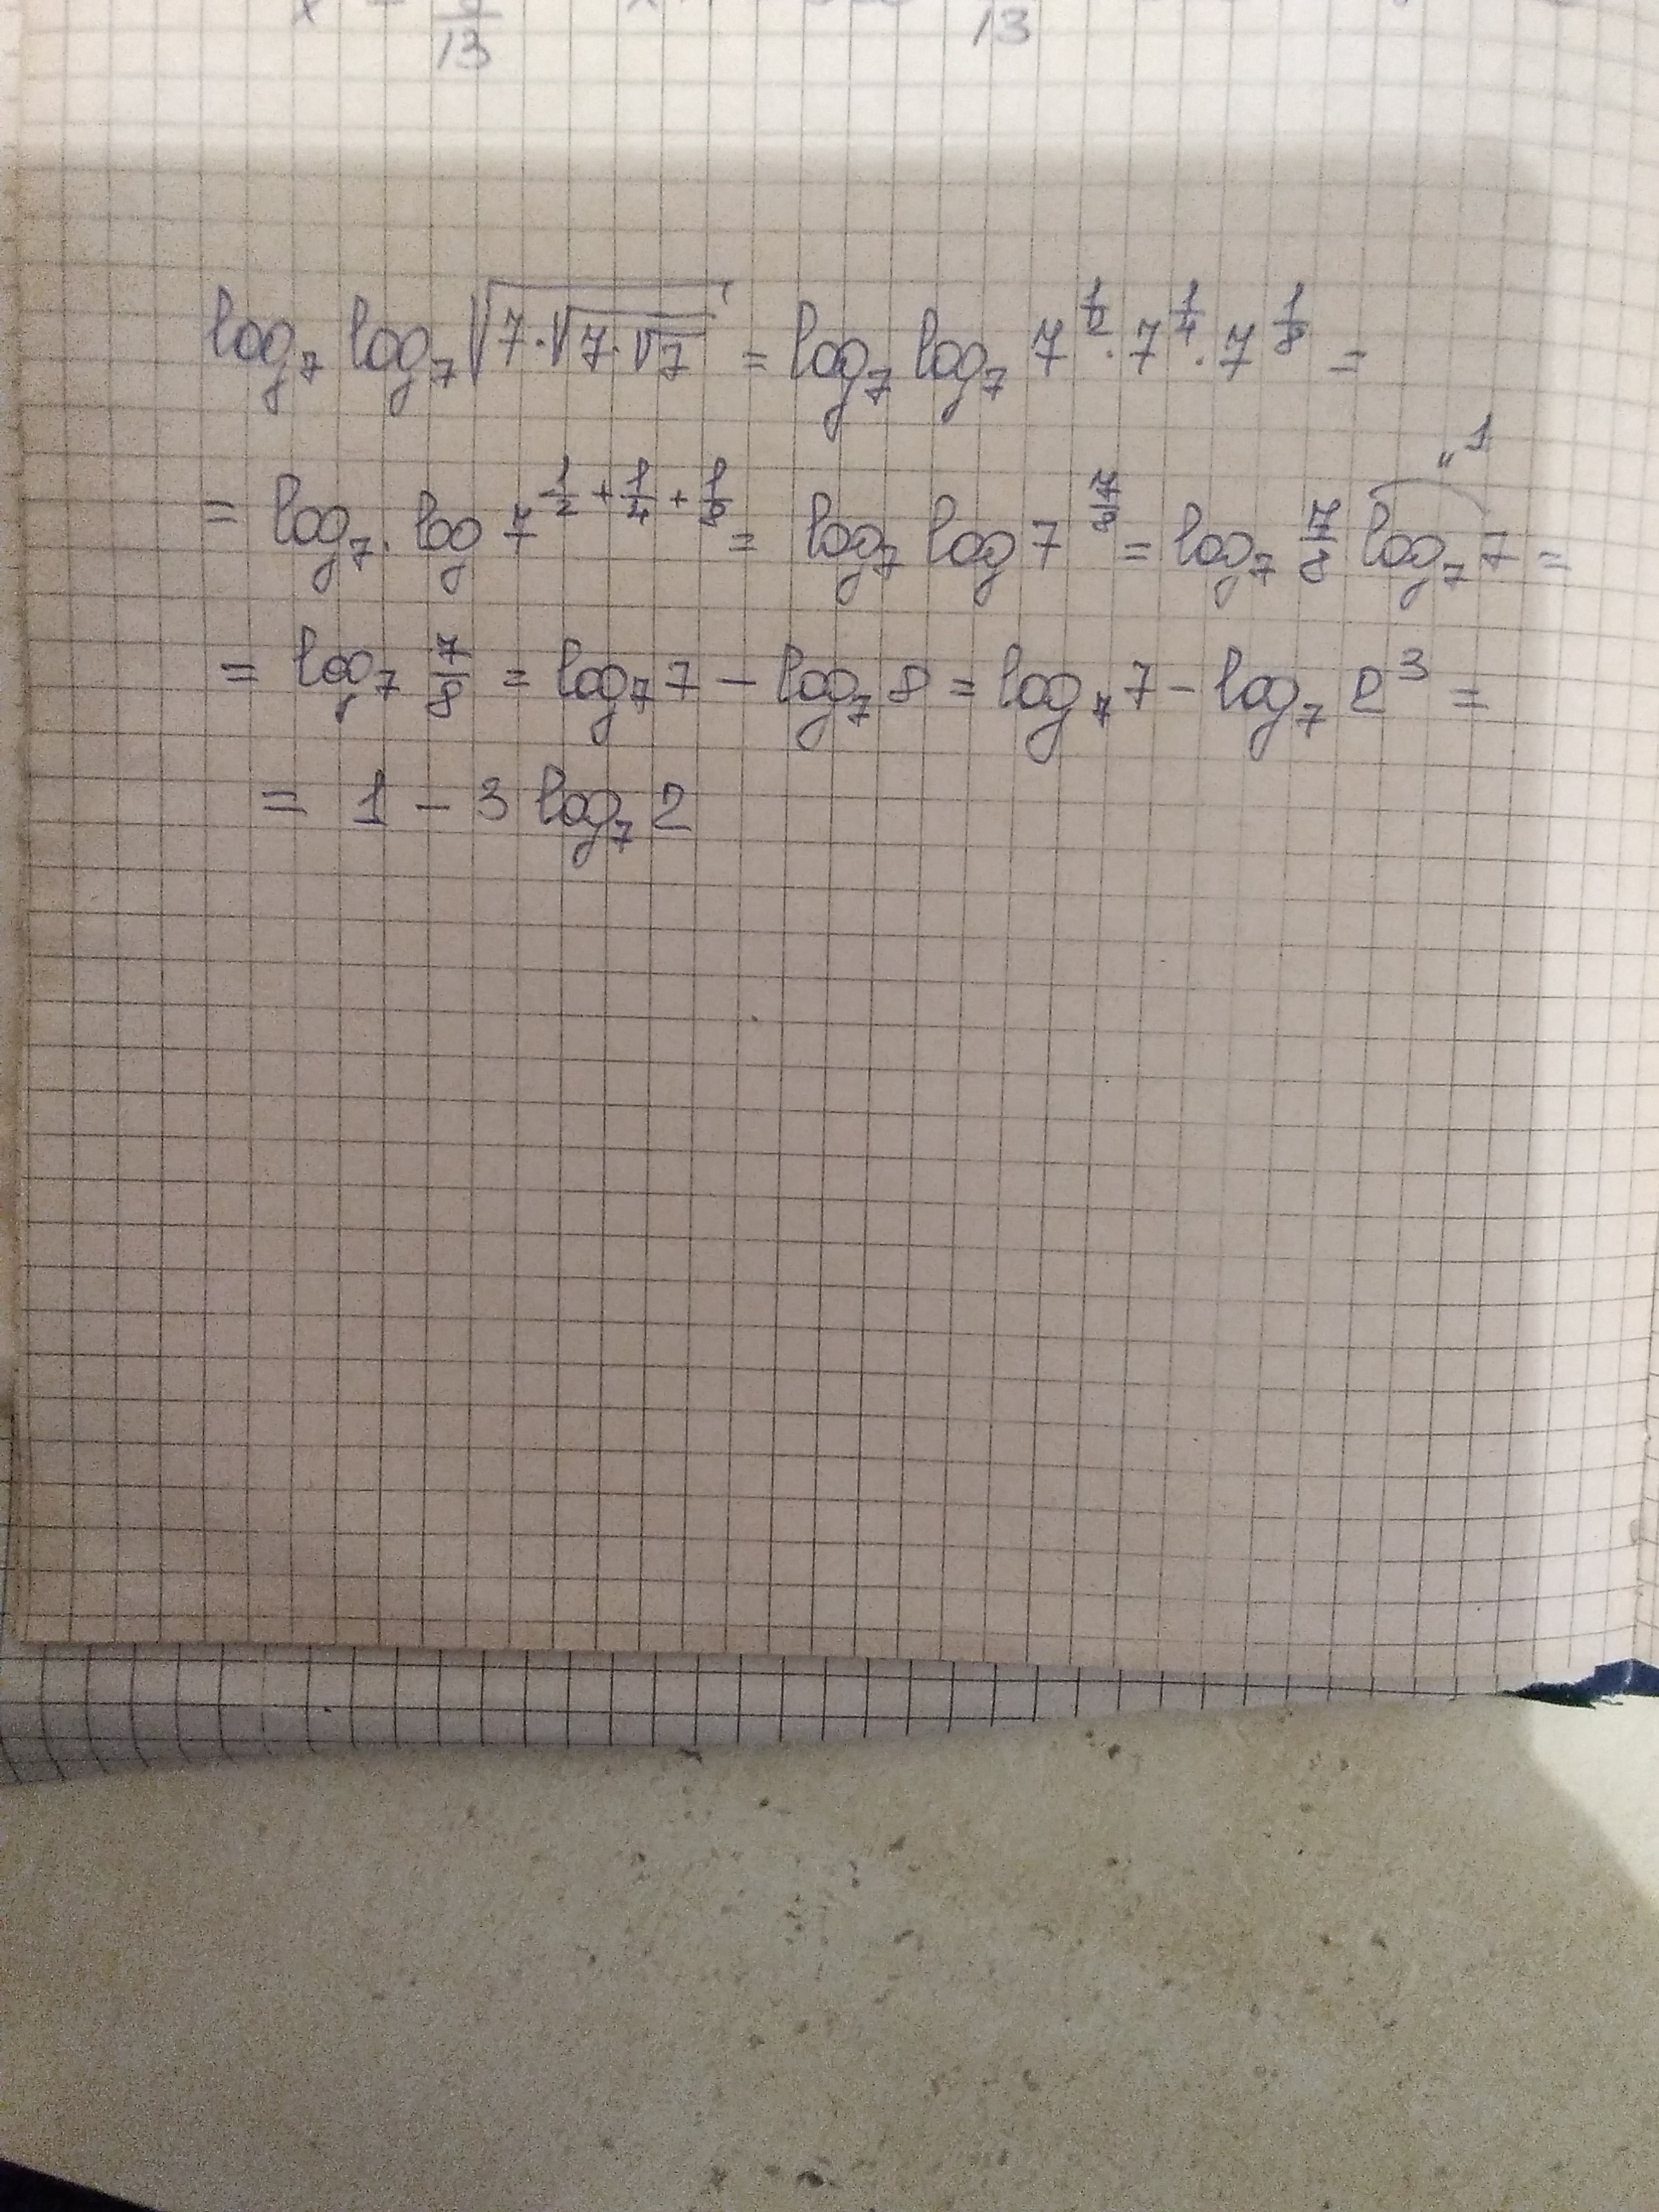 log₇ log₇ √(7·√(7·√7)) = log₇ log₇ 7^(1/2) · 7^(1/4) · 7^(1/8) =
"1
= log₇ · log 7^(1/2 + 1/4 + 1/8) = log₇ log 7^(7/8) = log₇ 7/8 log₇ 7 =
= log₇ 7/8 = log₇ 7 − log₇ 8 = log₇ 7 − log₇ 2³ =
= 1 − 3 log₇ 2